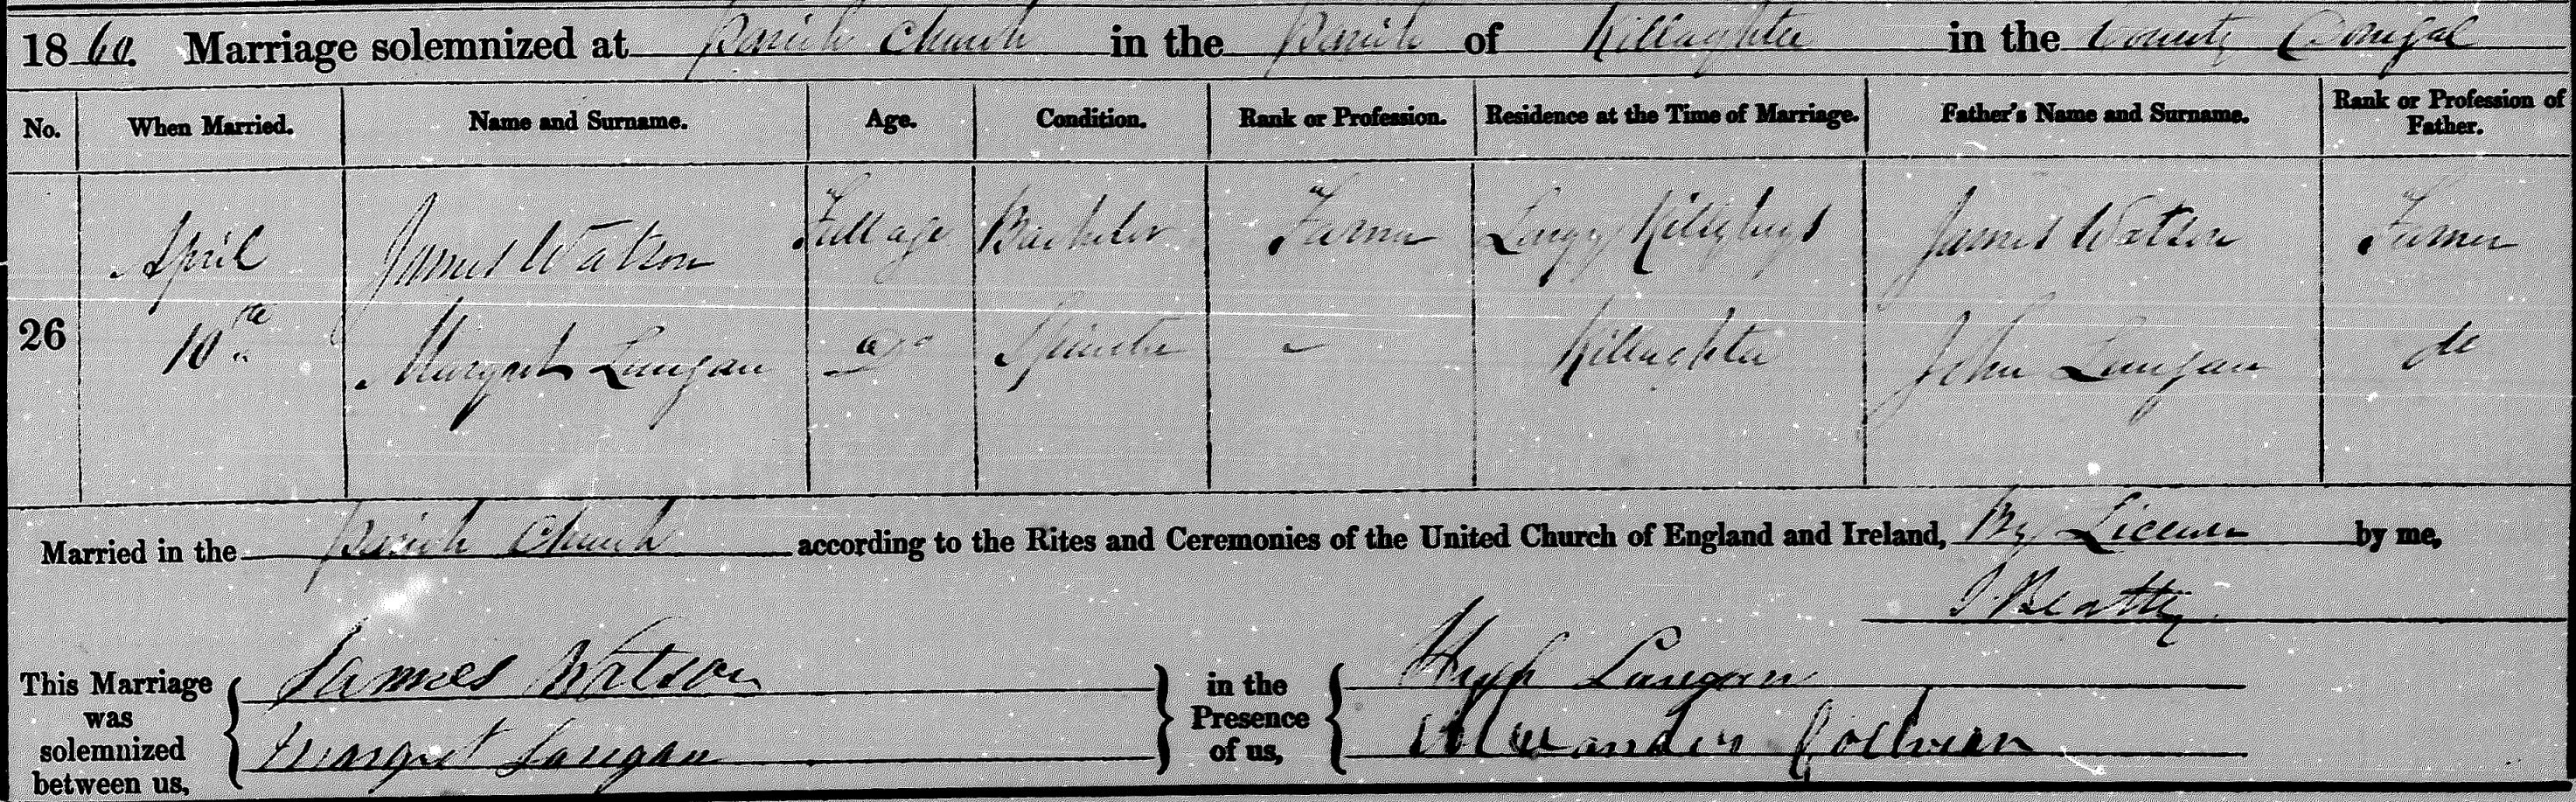 1860. Marriage solemnized at Parish Church in the Parish of Killaghtee in the County Donegal
No. When Married. Name and Surname. Age. Condition. Rank or Profession. Residence at the Time of Marriage. Father's Name and Surname. Rank or Profession of Father.
April James Watson Full age Bachelor Farmer Killybegs James Watson Farmer
26 10th Margret Langan do Spinster - Killaghtee John Langan do
Married in the Parish Church according to the Rites and Ceremonies of the United Church of England and Ireland, By License by me,
J Beatty
This Marriage was solemnized between us, James Watson in the Presence of us, Hugh Langan
Margret Langan Alexander